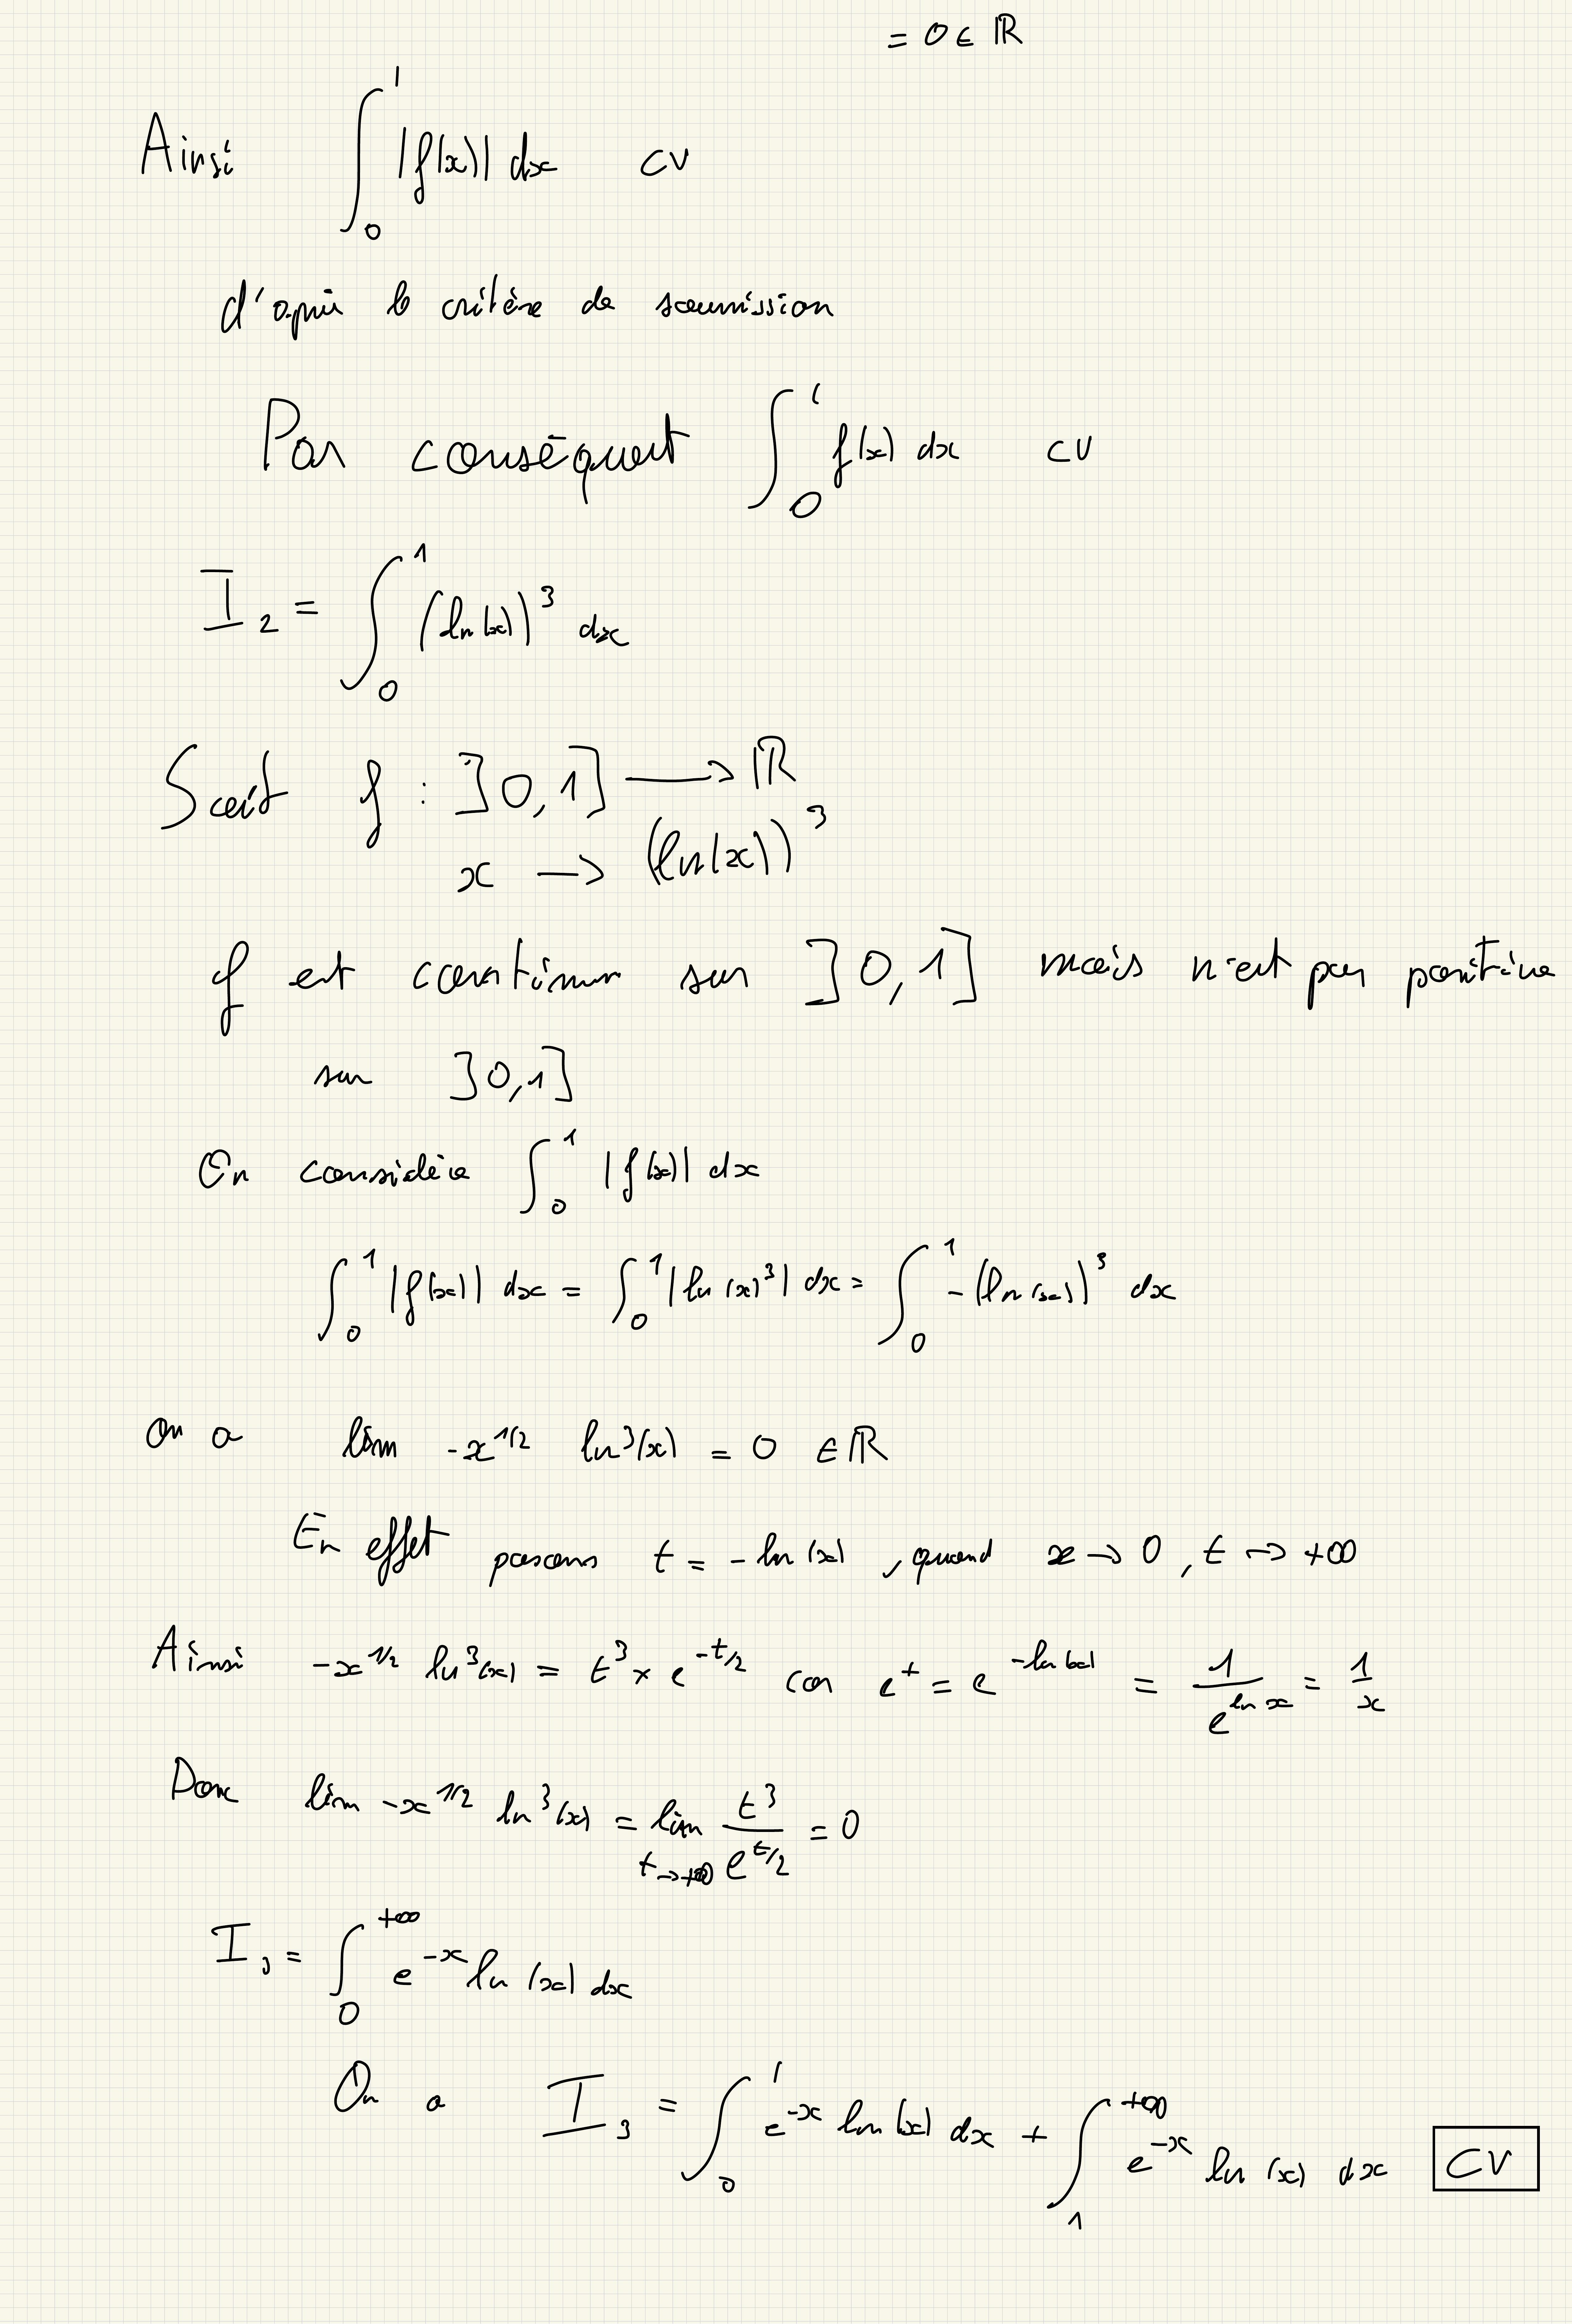 = 0 ∈ ℝ
Ainsi ∫_0^1 |f(x)| dx CV
d'après le critère de soumission
Par conséquent ∫_0^1 f(x) dx CV
I_2 = ∫_0^1 (ln(x))^3 dx
Soit f : ]0,1] → ℝ
x → (ln(x))^3
f est continue sur ]0,1] mais n'est pas positive
sur ]0,1]
On considère ∫_0^1 |f(x)| dx
∫_0^1 |f(x)| dx = ∫_0^1 |ln(x)^3| dx = ∫_0^1 -(ln(x))^3 dx
On a lim -x^{1/2} ln^3(x) = 0 ∈ ℝ
En effet posons t = -ln(x), quand x → 0, t → +∞
Ainsi -x^{1/2} ln^3(x) = t^3 × e^{-t/2} car e^t = e^{-ln(x)} = 1/e^{ln x} = 1/x
Donc lim -x^{1/2} ln^3(x) = lim_{t→+∞} t^3/e^{t/2} = 0
I_3 = ∫_0^{+∞} e^{-x} ln(x) dx
On a I_3 = ∫_0^1 e^{-x} ln(x) dx + ∫_1^{+∞} e^{-x} ln(x) dx CV